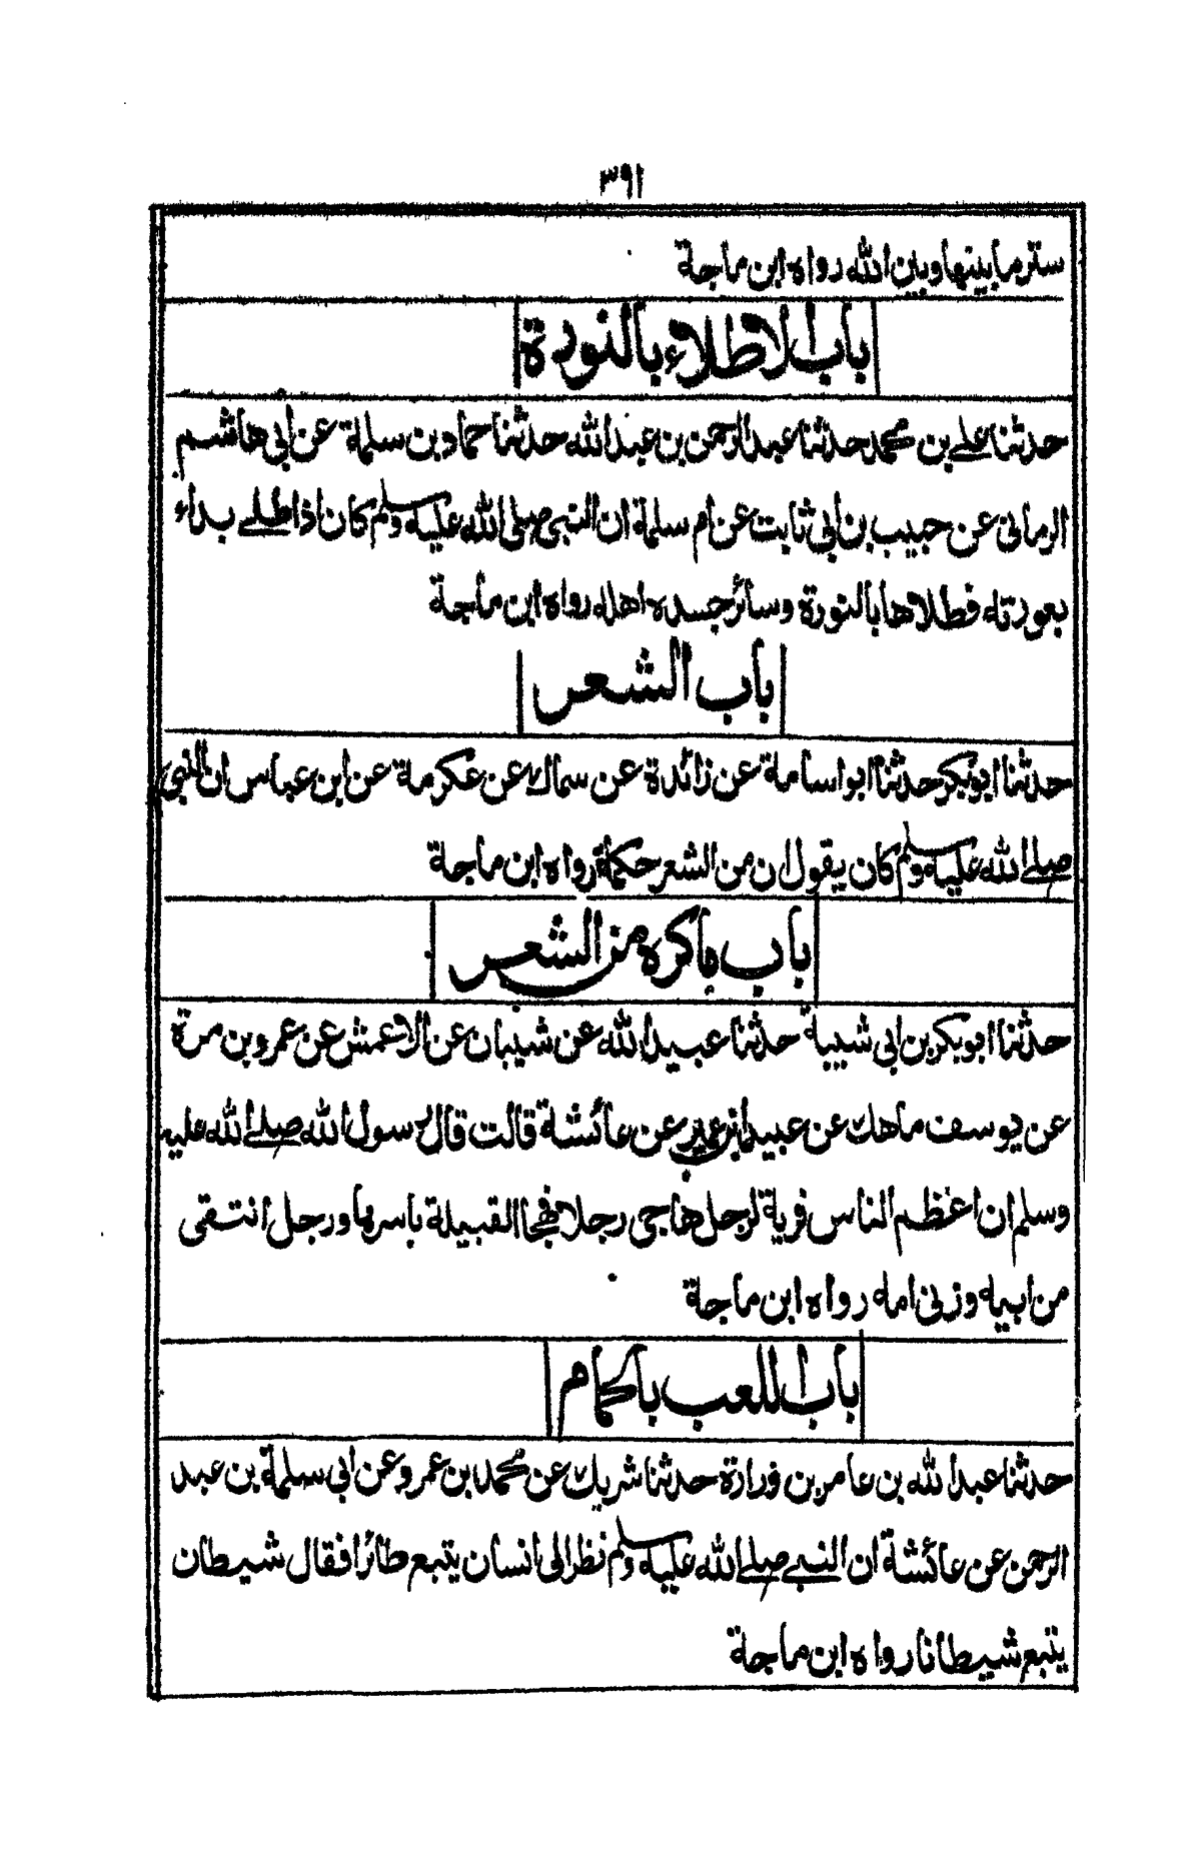 ٣٩١
ستر ما بينها وبين الله رواه ابن ماجة
باب الاطلاء بالنورة
حدثنا علي بن محمد حدثنا عبد الرحمن بن عبد الله حدثنا حماد بن سلمة عن ابي هاشم
الرماني عن حبيب بن ابي ثابت عن ام سلمة ان النبي صلى الله عليه وسلم كان اذا طلى بداء
بعورته فطلاها بالنورة وسائر جسده اهله رواه ابن ماجة
باب الشعر
حدثنا ابو بكر حدثنا ابو اسامة عن زائدة عن سماك عن عكرمة عن ابن عباس ان النبي
صلى الله عليه وسلم كان يقول ان من الشعر حكما رواه ابن ماجة
باب ما كره من الشعر
حدثنا ابو بكر بن ابي شيبة حدثنا عبيد الله عن شيبان عن الاعمش عن عمرو بن مرة
عن يوسف ماهك عن عبيد ابن عمير عن عائشة قالت قال رسول الله صلى الله عليه
وسلم ان اعظم الناس فرية لرجل هاجى رجلا فهجا القبيلة باسرها ورجل انتقى
من ابيه وزنى امه رواه ابن ماجة
باب اللعب بالحمام
حدثنا عبد الله بن عامر بن زرارة حدثنا شريك عن محمد بن عمرو عن ابي سلمة بن عبد
الرحمن عن عائشة ان النبي صلى الله عليه وسلم نظر الى انسان يتبع طائرا فقال شيطان
يتبع شيطانا رواه ابن ماجة